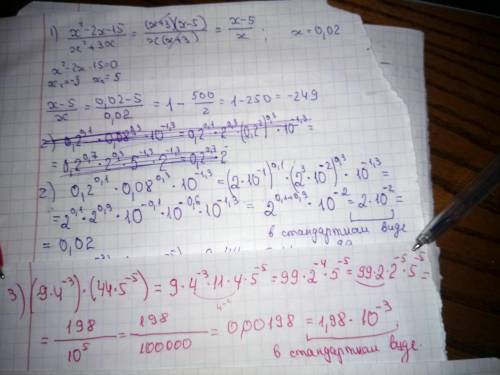 1) (x²-2x-15)/(x²+3x) = ((x+3)(x-5))/(x(x+3)) = (x-5)/x ; x = 0,02
x²-2x-15=0
x₁=-3 x₂=5
(x-5)/x = (0,02-5)/0,02 = 1 - 500/2 = 1-250 = -249
2) 0,2^0,1 · 0,08^0,3 · 10^-1,3 = (2·10^-1)^0,1 · (2³·10^-2)^0,3 · 10^-1,3 =
= 2^0,1 · 2^0,9 · 10^-0,1 · 10^-0,6 · 10^-1,3 = 2^0,1+0,9 · 10^-2 = 2·10^-2 =
= 0,02 в стандартном виде
3) (9·4^-3)·(44·5^-5) = 9·4^-3·11·4·5^-5 = 99·2^-4·5^-5 = 99·2·2^-5·5^-5 =
= 198/10^5 = 198/100000 = 0,00198 = 1,98·10^-3
в стандартном виде.